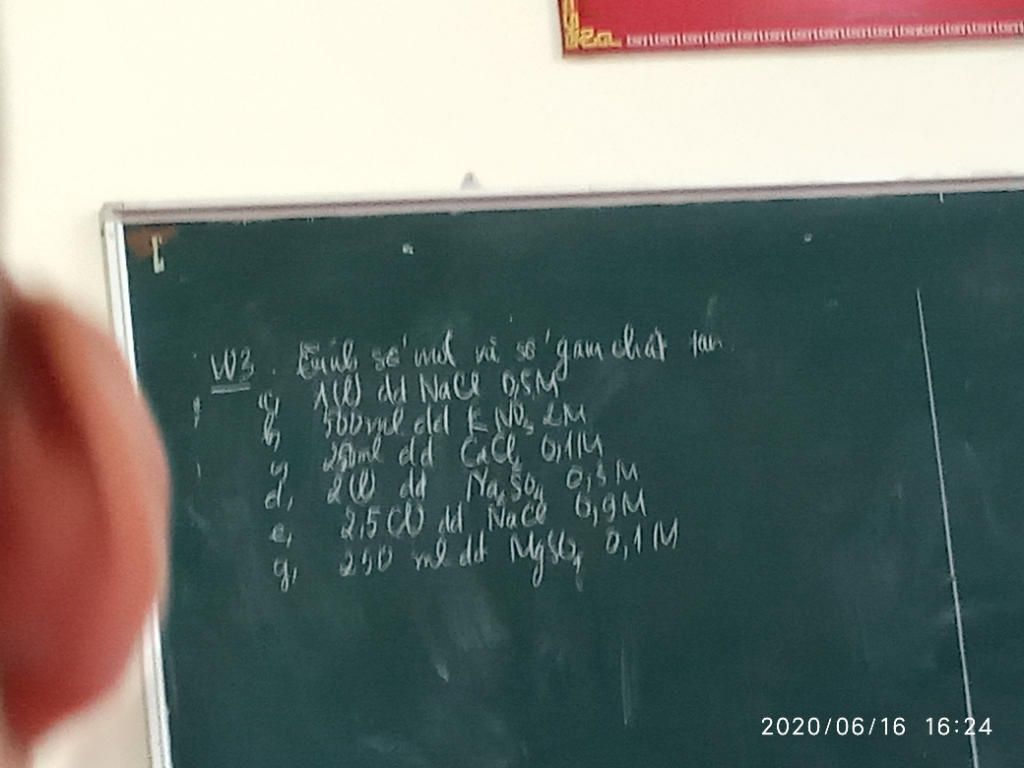 W3. Tính số mol và số gam chất tan
a, 1(l) dd NaCl 0,5M
b, 500ml dd KNO3 2M
250ml dd CaCl2 0,1M
d, 2(l) dd Na2SO4 0,3M
e, 2,5(l) dd NaCl 0,9M
g, 250 ml dd MgSO4 0,1M
2020/06/16 16:24